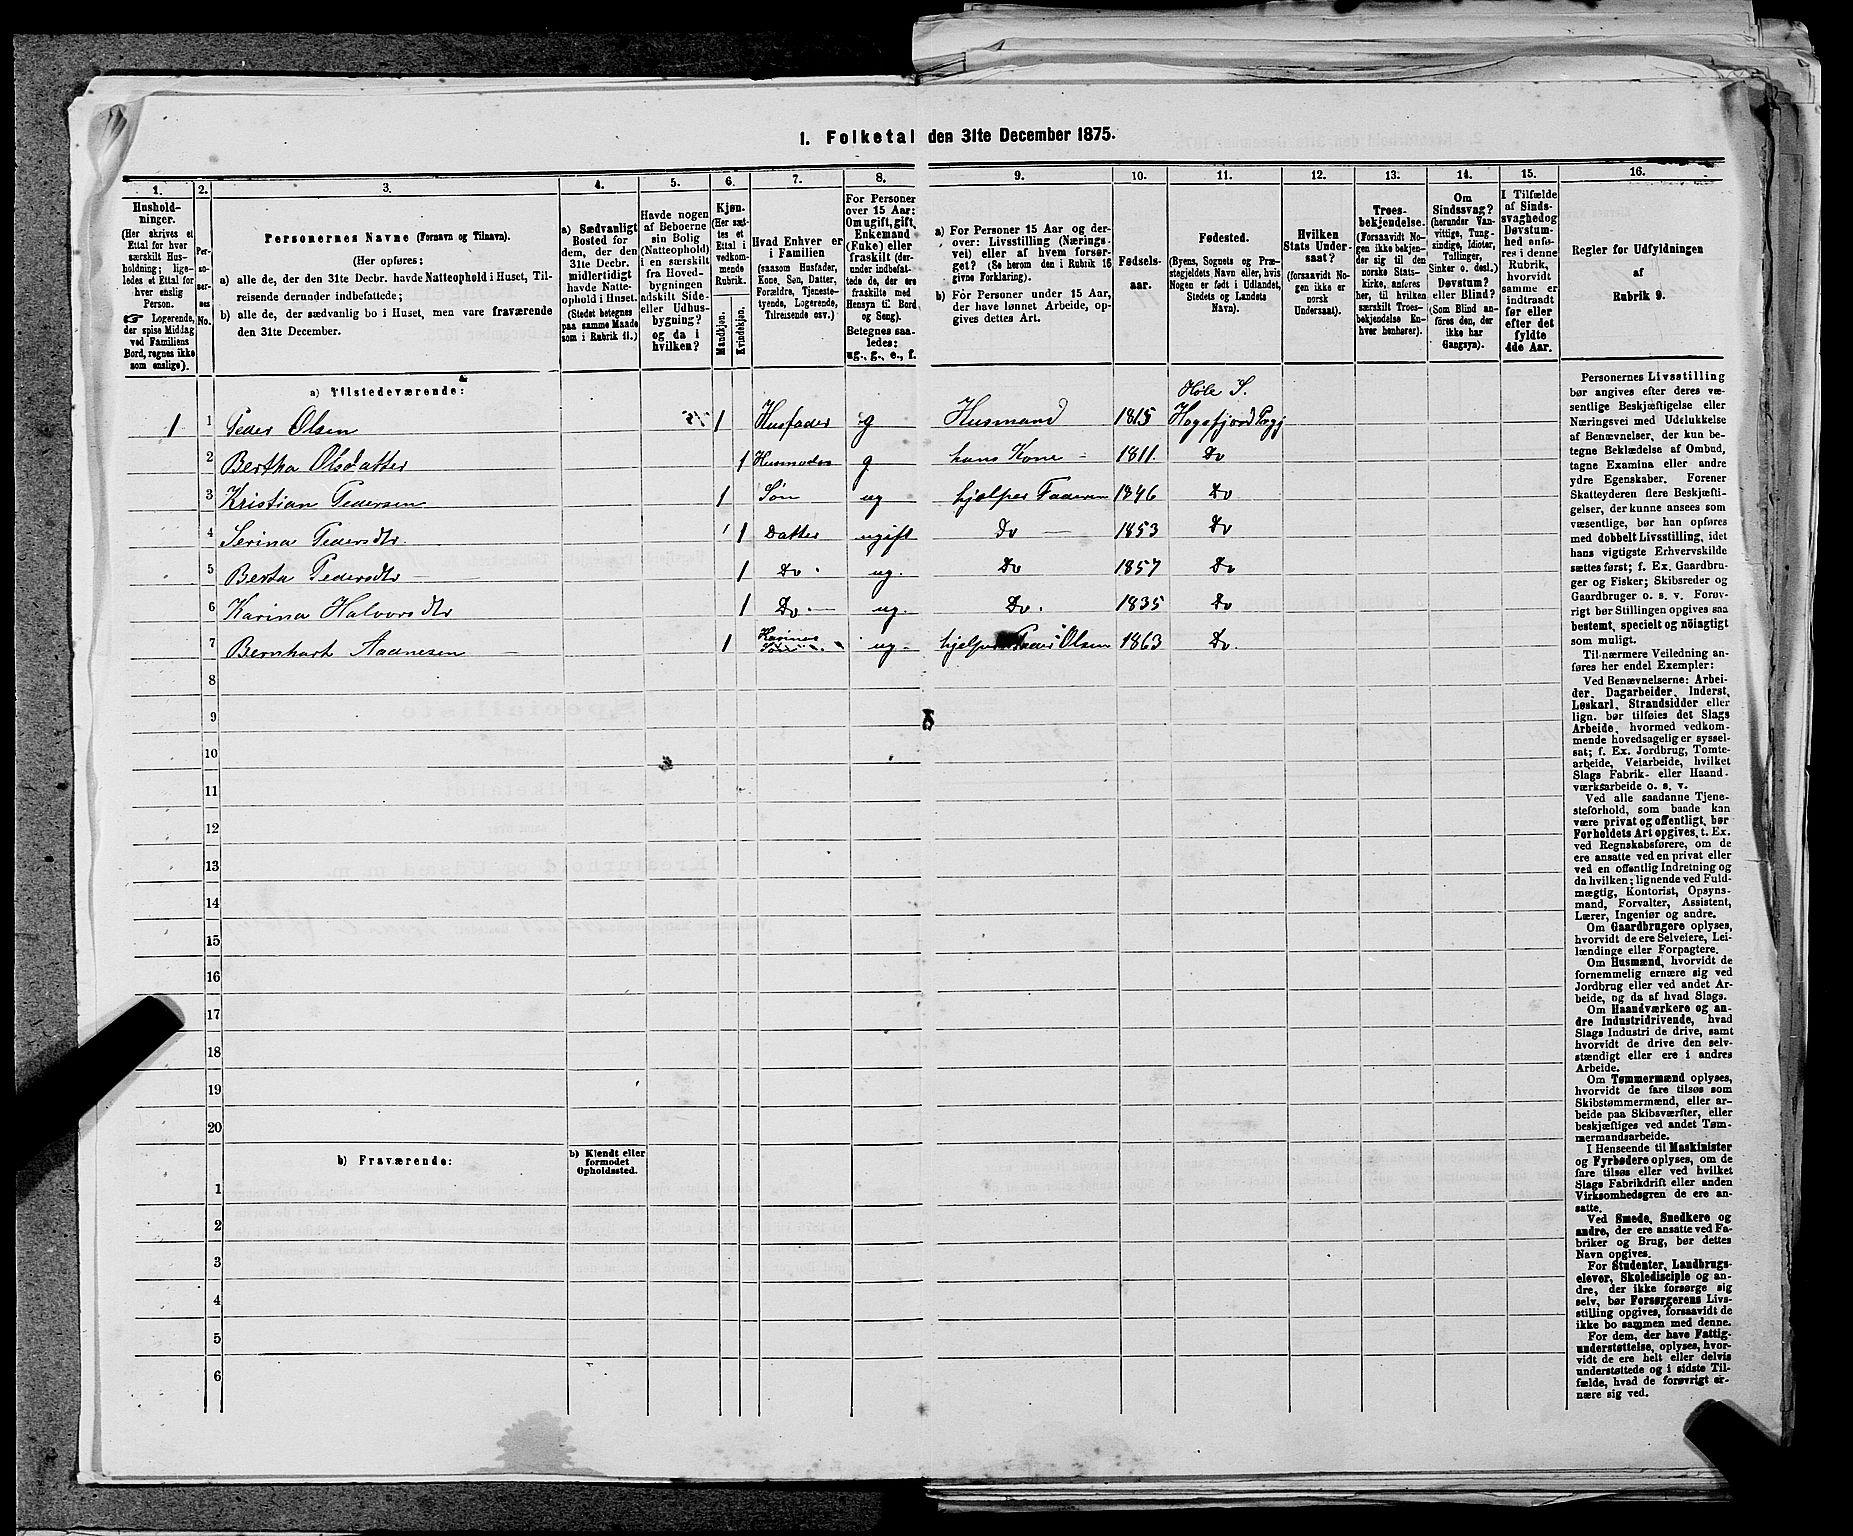 1. Folketal den 31te December 1875.
1.
2.
3.
4.
5.
6.
7.
8.
9.
10.
11.
12.
13.
14.
15.
16.
Hushold-
ninger.
(Her skrives et
Ettal for hver
særskilt Hus-
holdning; lige-
ledes et Ettal for
hver enslig
Person.
☞ Logerende,
der spise Middag
ved Familiens
Bord, regnes ikke
som enslige).
Per-
so-
ner-
nes
No.
Personernes Navne (Fornavn og Tilnavn).
(Her opføres:
a) alle de, der den 31te Decbr. havde Natteophold i Huset, Til-
reisende derunder indbefattede;
b) alle de, der sædvanlig bo i Huset, men vare fraværende
den 31te December.
a) Sædvanligt
Bosted for
dem, der den
31te Decbr.
midlertidigt
havde Natte-
ophold i Huset.
(Stedet betegnes
paa samme Maade
som i Rubrik 11.)
Havde nogen
af Beboerne
sin Bolig
(Natteophold)
i en særskilt
fra Hoved-
bygningen
adskilt Side-
eller Udhus-
bygning?
og da i
hvilken?
Kjøn.
(Her sæt-
tes et
Ettal i
vedkom-
mende
Rubrik.
Mandkjøn.
Kvindekjøn.
Hvad Enhver er
i Familien
(saasom Husfader,
Kone, Søn, Datter,
Forældre, Tjeneste-
tyende, Logerende,
Tilreisende osv.)
For Personer
over 15 Aar:
Om ugift, gift,
Enkemand
(Enke) eller
fraskilt (der-
under indbefat-
tede de, der ere
fraskilte med
Hensyn til Bord
og Seng).
Betegnes saa-
ledes:
ug., g., e., f.
a) For Personer 15 Aar og der-
over: Livsstilling (Nærings-
vei) eller af hvem forsør-
get? (Se herom den i Rubrik 16
givne Forklaring).
b) For Personer under 15 Aar,
der have lønnet Arbeide, op-
gives dettes Art.
Fødsels-
aar.
Fødested.
(Byens, Sognets og Præ-
stegjeldets Navn eller, hvis
Nogen er født i Udlandet,
Stedets og Landets
Navn).
Hvilken
Stats Under-
saat?
(forsaavidt No-
gen ikke er
norsk
Undersaat).
Troes-
bekjendelse.
(Forsaavidt No-
gen ikke bekjen-
der sig til den
norske Stats-
kirke, anføres
her, til hvilken
særskilt Troes-
bekjendelse En-
hver henhører).
Om
Sindssvag?
(herunder Van-
vittige, Tung-
sindige, Idioter,
Tallinger,
Sinker o. desl.)
Døvstum?
eller Blind?
(Som Blind an-
føres den, der
ikke har
Gangsyn).
I Tilfælde
af Sinds-
svaghed og
Døvstum-
hed anfø-
res i denne
Rubrik,
hvorvidt
samme er
indtraadt
før eller
efter det
fyldte
4de Aar.
Regler for Udfyldningen
af
Rubrik 9.
a) Tilstedeværende:
Høle S.
1 1 Peder Olsen 1 Husfader g Husmand 1815 Høgsfjord Prgj
2 Bertha Olsdatter 1 Husmoder g hans Kone - 1811. Do
3 Kristian Pedersen 1 Søn ug hjælper Faderen 1846 Do
4 Serina Pedersdtr. 1 Datter ugift Do — 1853 Do
5 Berta Pedersdtr — 1 Do - ug. Do 1857 Do
6 Karina Halvorsdtr 1 Do - ug. Do. 1835 Do
7 Bernhart Aadnesen — 1 Karines Søn ug - hjelper Peder Olsen 1863 Do.
8
9
10
11
12
13
14
15
16
17
18
19
20
b) Fraværende:
b) Kjendt eller
formodet
Opholdssted.
1
2
3
4
5
6
Personernes Livsstilling
bør angives efter deres væ-
sentlige Beskjæftigelse eller
Næringsvei med Udelukkelse
af Benævnelser, der kun be-
tegne Beklædelse af Ombud,
tagne Examina eller andre
ydre Egenskaber. Forener
Skatteyderen flere Beskjæfti-
gelser, der kunne ansees som
væsentlige, bør han opføres
med dobbelt Livsstilling, idet
hans vigtigste Erhvervskilde
sættes først; f. Ex. Gaardbru-
ger og Fisker; Skibsreder og
Gaardbruger o. s. v. Forøv-
rigt bør Stillingen opgives saa
bestemt, specielt og nöiagtigt
som muligt.
Til nærmere Veiledning an-
føres her endel Exempler:
Ved Benævnelserne: Arbei-
der, Dagarbeider, Inderst,
Løskarl, Strandsidder eller
lign. bør tilføies det Slags
Arbeide, hvormed vedkom-
mende hovedsagelig er syssel-
sat; f. Ex. Jordbrug, Tomte-
arbeide, Veiarbeide, hvilket
Slags Fabrik- eller Haand-
værksarbeide o. s. v.
Ved alle saadanne Tjene-
steforhold, som baade kan
være privat og offentligt, bør
Forholdets Art opgives, t. Ex.
ved Regnskabsførere, om de
ere ansatte ved en privat eller
ved en offentlig Indretning og
da hvilken; lignende ved Fuld-
mægtig, Kontorist, Opsyns-
mand, Forvalter, Assistent,
Lærer, Ingeniør og andre.
Om Gaardbrugere oplyses,
hvorvidt de ere Selveiere, Lei-
lændinge eller Forpagtere.
Om Husmænd, hvorvidt de
fornemmelig ernære sig ved
Jordbrug eller ved andet Ar-
beide, og da af hvad Slags.
Om Haandværkere og an-
dre Industridrivende, hvad
Slags Industri de drive, samt
hvorvidt de drive den selv-
stændigt eller ere i andres
Arbeide.
Om Tømmermænd oplyses,
hvorvidt de fare tilsøs som
Skibstømmermænd, eller ar-
beide paa Skibsværfter, eller
beskjæftiges ved andet Tøm-
mermandsarbeide.
I Henseende til Maskinister
og Fyrbødere oplyses, om de
fare tilsøs eller ved hvilket
Slags Fabrikdrift eller anden
Virksomhedsgren de ere an-
satte.
Ved Smede, Snedkere og
andre, der ere ansatte ved Fa-
briker og Brug, bør dettes
Navn opgives.
For Studenter, Landbrugs-
elever, Skoledisciple og an-
dre, der ikke forsørge sig
selv, bør Forsørgerens Livs-
stilling opgives, forsaavidt de
ikke bo sammen med denne.
For dem, der have Fattig-
understøttelse, oplyses, hvor-
vidt de ere helt eller delvis
understøttede og i sidste Til-
fælde, hvad de forøvrigt er-
nære sig ved.